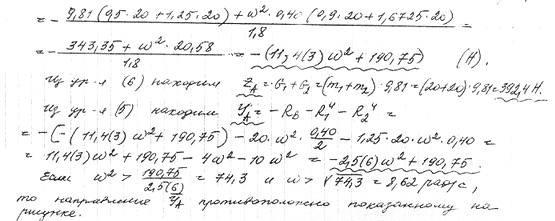 = - 9,81 (0,5·20 + 1,25·20) + ω²·0,40 (0,9·20 + 1,6725·20) / 1,8 =
= - 343,35 + ω²·20,58 / 1,8 = - (11,4(3) ω² + 190,75) (Н).
Из ур-я (6) находим Z_A = G₁ + G₂ = (m₁+m₂)·9,81 = (20+20)·9,81 = 392,4 Н.
Из ур-я (5) находим Y_A = - R_B - R₁ᵘ - R₂ᵘ =
= - [- (11,4(3) ω² + 190,75) - 20·ω²· 0,40/2 - 1,25·20·ω²·0,40 =
= 11,4(3) ω² + 190,75 - 4ω² - 10ω² = - 2,5(6) ω² + 190,75.
Если ω² > 190,75 / 2,5(6) = 74,3 и ω > √74,3 = 8,62 рад/с,
то направление Y_A противоположно показанному на
рисунке.